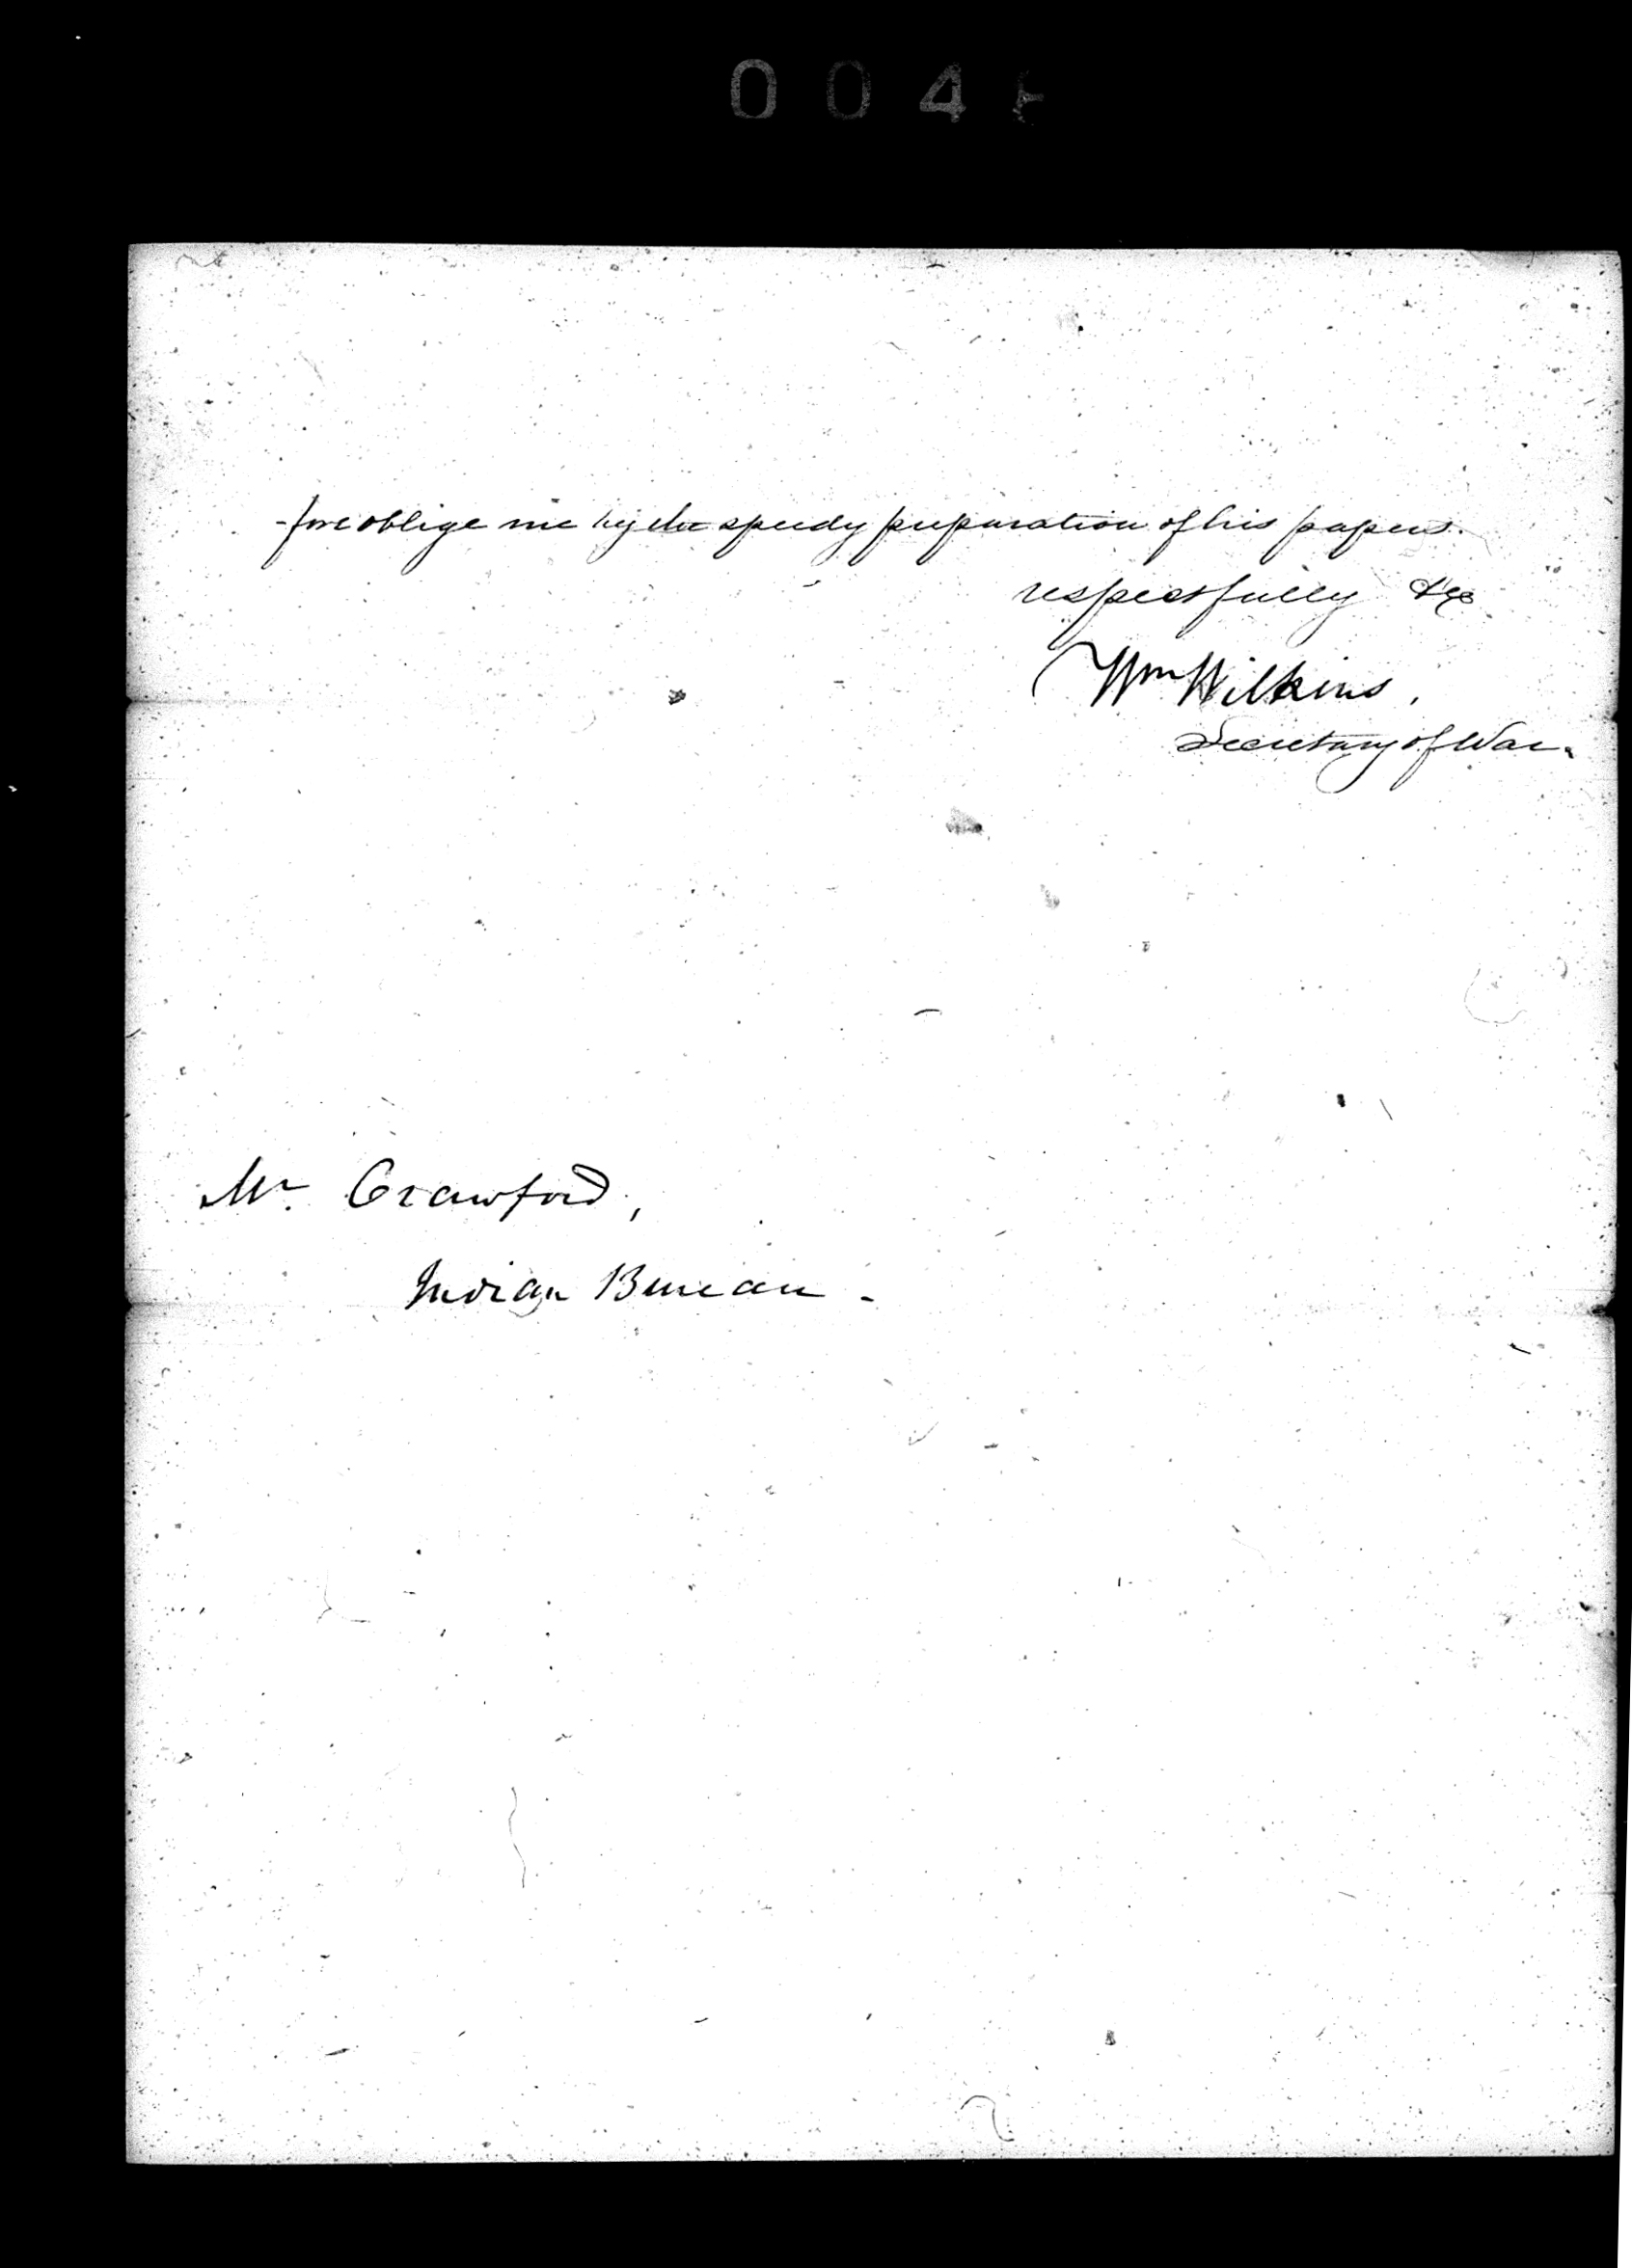 004
-fore oblige me by the speedy preparation of his papers.
respectfully &c
Wm Wilkins,
Secretary of War.
Mr. Crawford,
Indian Bureau -